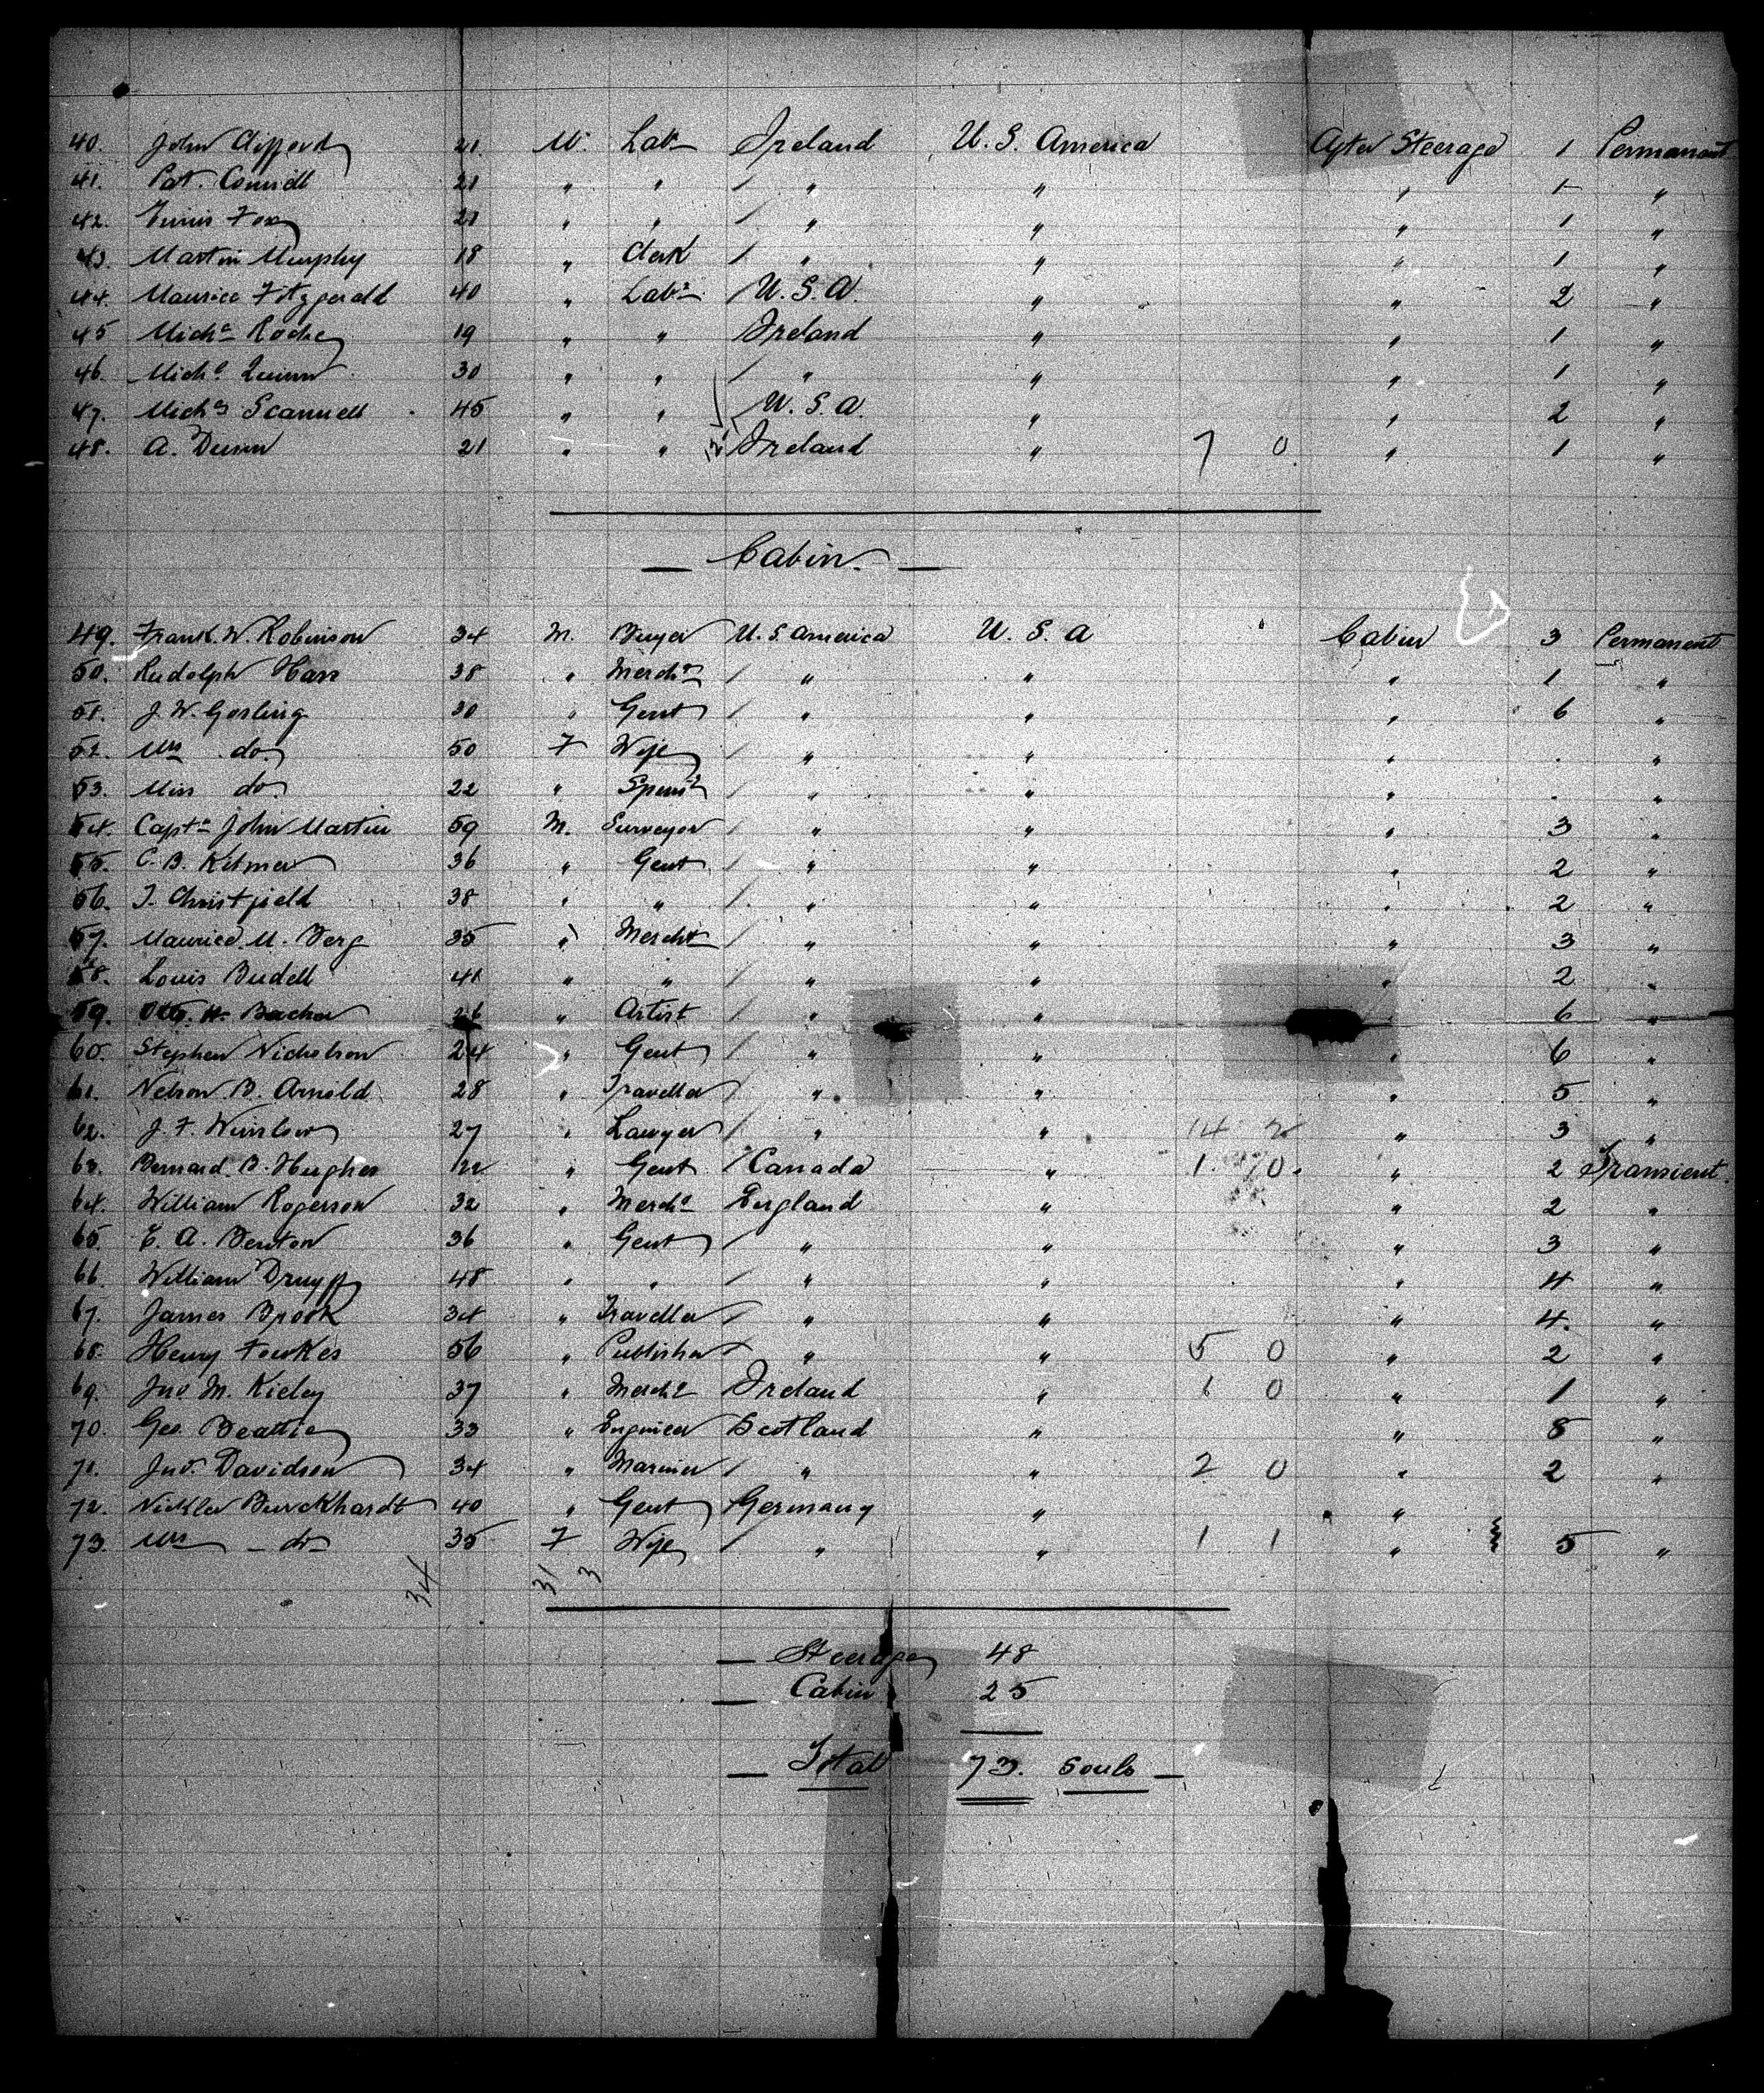 40. John Clifford 21 M. Labr Ireland U. S. America After Steerage 1 Permanent
41. Pat. Connell 21 " " / " " " 1 "
42. Fox 21 " " / " " " 1 "
43. Martin Murphy 18 " Clerk / " " " 1 "
44. Maurice Fitzgerald 40 " Labr / U. S. A. " " 2 "
45 Michl Roche 19 " " Ireland " " 1 "
46. Michl Quinn 30 " " / " " " 1 "
47. Michl Scannell 45 " " / U. S. A. " " 2 "
48. A. Dunn 21 " " Ireland " 7 0. " 1 "
— Cabin. —
49. Frank. W. Robinson 34 M. Buyer U. S. America U. S. A Cabin 3 Permanent
50. Rudolph Hass 38 " Mercht / " " " 1 "
51. J. W. Gosling 30 " Gent / " " " 6 "
52. Mrs do. 50 F Wife / " " " . "
53. Miss do 22 " Spinsr / " " " . "
54. Captn John Martin 59 M. Surveyor / " " " 3 "
55. C. B. Kilmer 36 " Gent / " " " 2 "
56. J. Christfield 38 " " / " " " 2 "
57. Maurice. M. Berg 35 " Mercht / " " " 3 "
58. Louis Budell 41 " " / " " " 2 "
59. Otto. H. Bacher 26 " Artist / " " 6 "
60. Stephen Nicholson 24 " Gent / " " " 6 "
61. Nelson. B. Arnold 28 " Traveller / " " " 5 "
62. J. F. Winslow 27 " Lawyer / " " 14 2 " 3 "
63. Bernard. B. Hughes 22 " Gent / Canada " 1. 0. " 2 Transient.
64. William Rogerson 32 " Mercht England " " 2 "
65. E. A. Benton 36 " Gent / " " " 3 "
66. William 48 " " / " " " 4 "
67. James Brook 34 " Traveller / " " " 4. "
68. Henry Fowkes 56 " Publisher / " " 5 0 " 2 "
69. Jno M. Kieley 37 " Mercht Ireland " 1 0 " 1 "
70. Geo. Beattie 33 " Engineer Scotland " " 8 "
71. Jno. Davidson 34 " Mariner / " " 2 0 " 2 "
72. Burckhardt 40 " Gent Germany " "
73. Mrs — do 35 F Wife / " " 1 1 " 5 "
34 31 3
— Steerage 48
— Cabin 25
— Total 73. Souls —